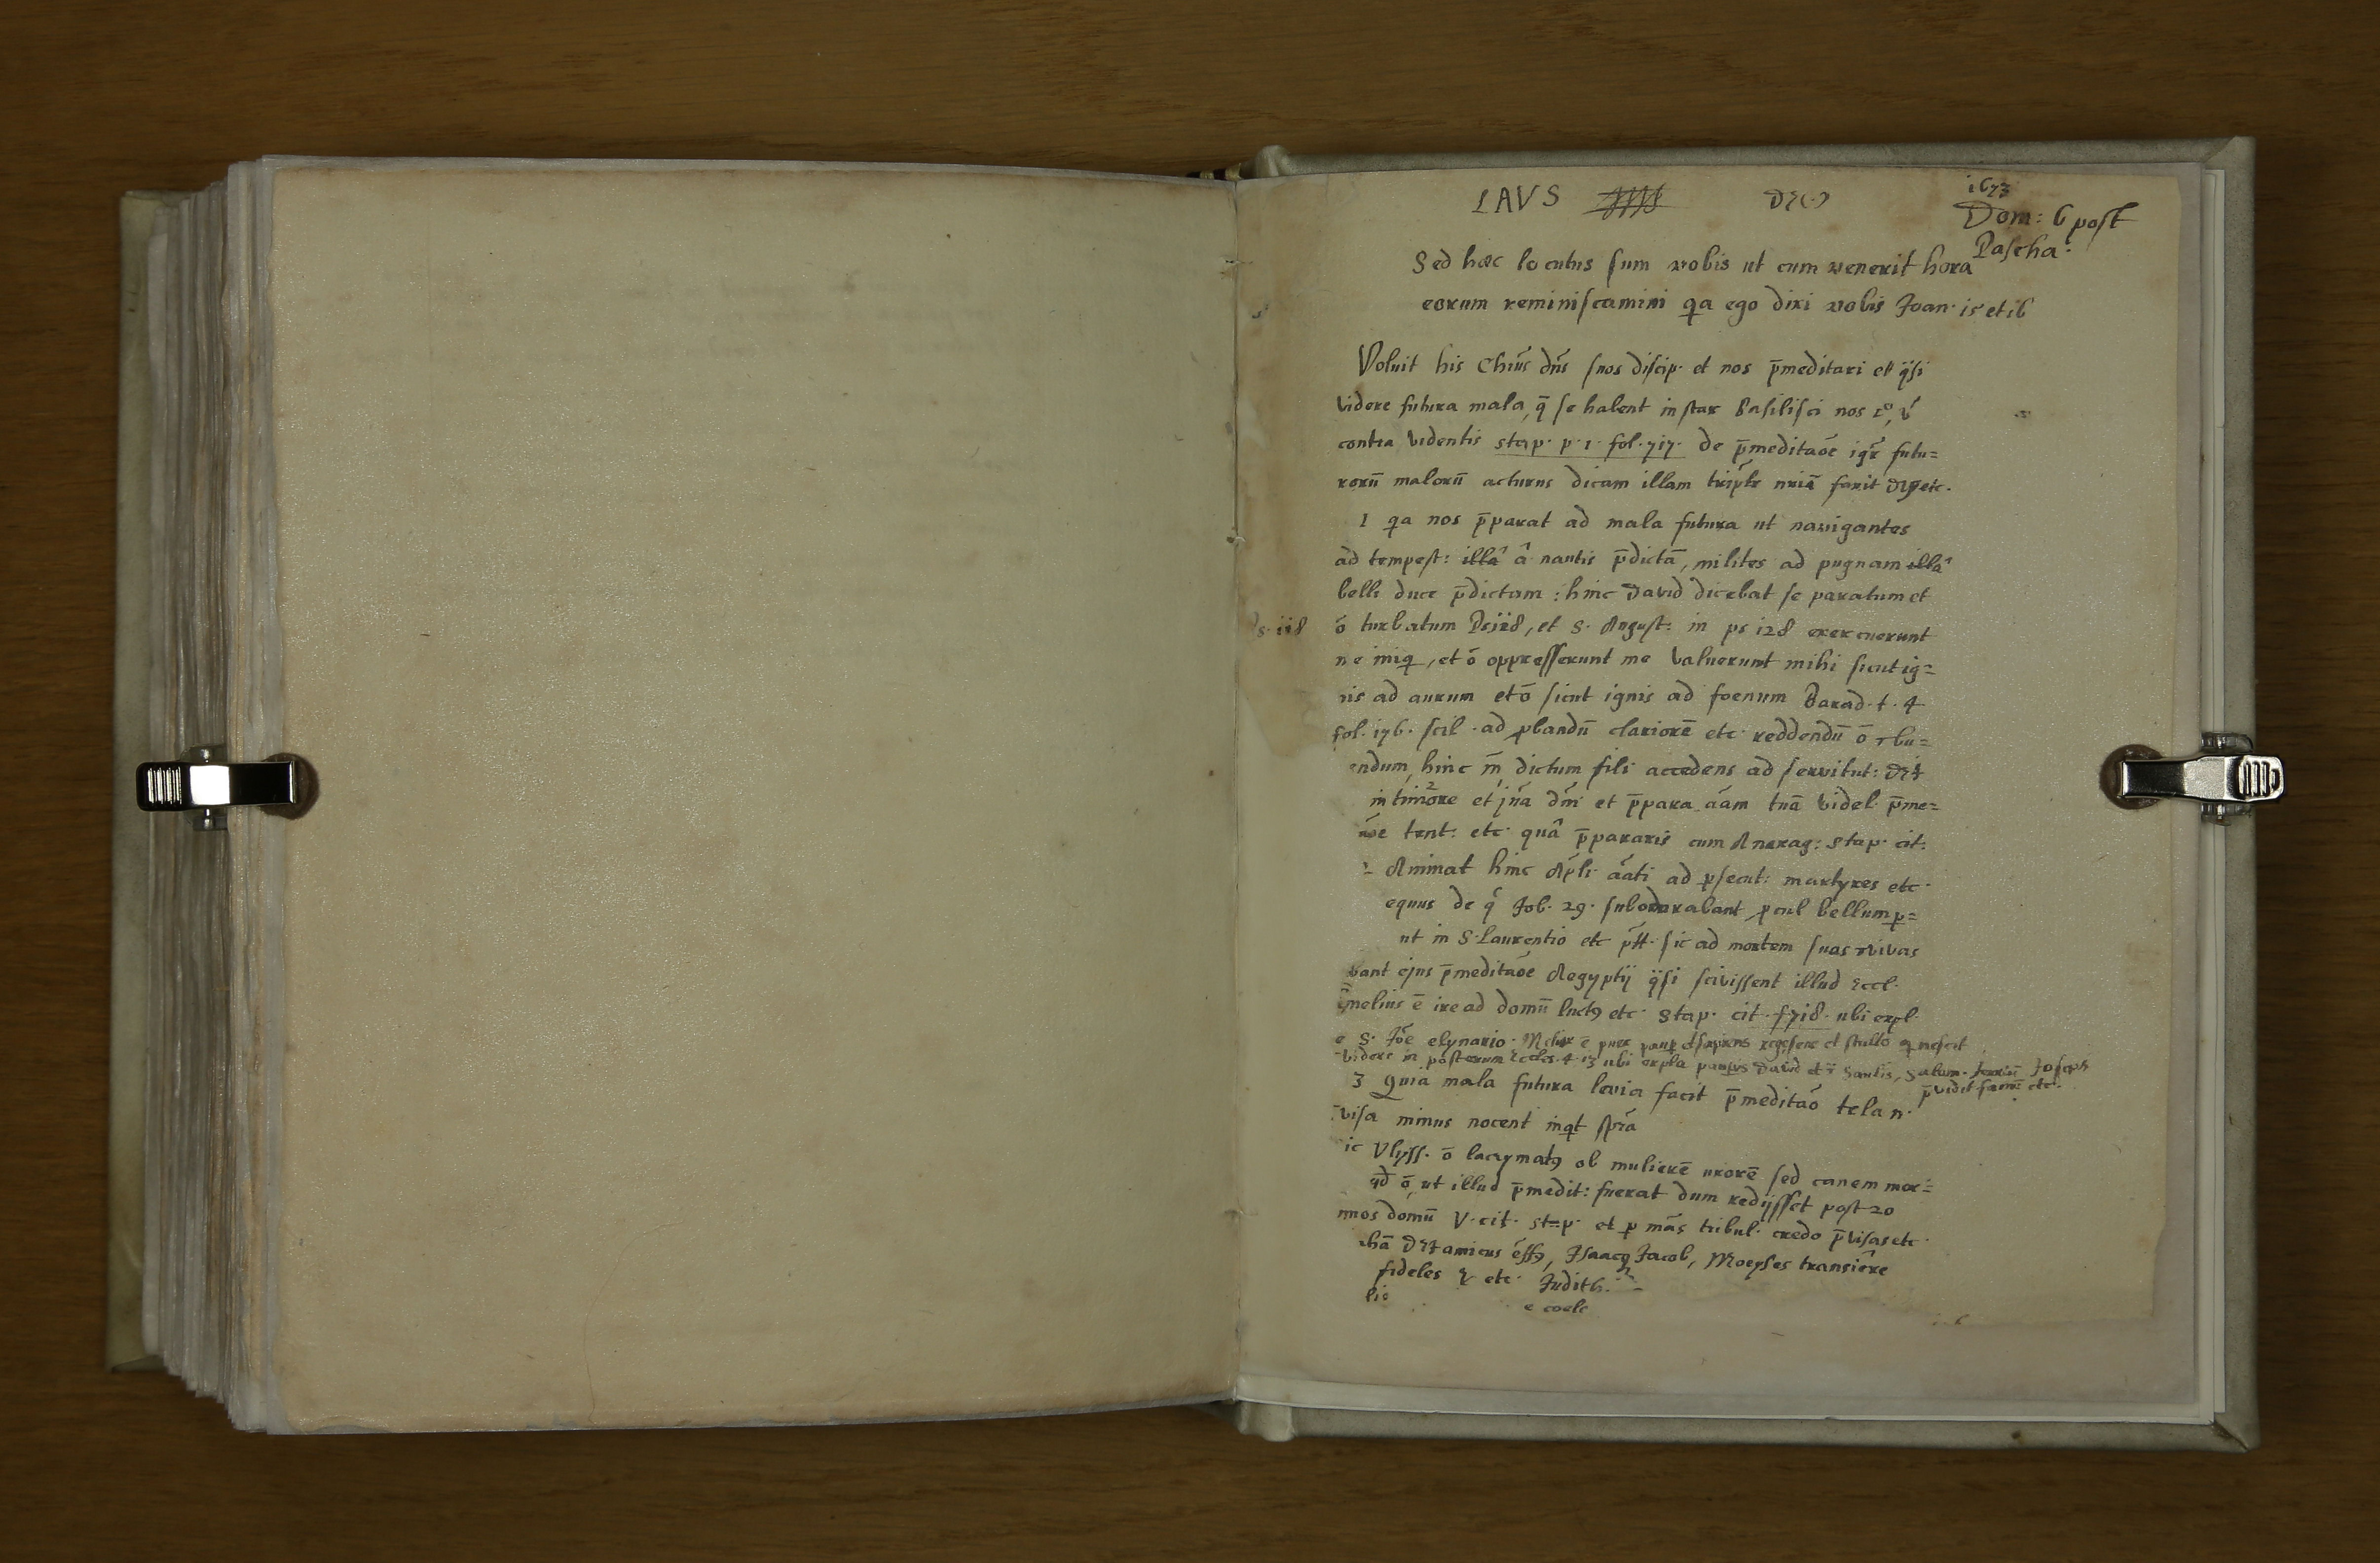 LAVS DEO
1673
Dom: 6 post
Pascha:
Sed hæc locutus sum vobis ut cum venerit hora
eorum reminiscamini qa ego dixi vobis Joan. 15 et 16
Voluit his Chrus dns suos discip. et nos p̄meditari et qsi
videre futura mala, q̄ se habent instar Basilisci nos
contra videntis stap. p. 1. fol. 717. de p̄meditaõe igr futu=
rorū malorū acturus dicam illam
1 qa nos p̄parat ad mala futura ut navigantes
ad tempest: illâ â nautis p̄dictā, milites ad pugnam illâ
belli duce p̄dictam: hinc David dicebat se paratum et
Ps. 118
ō turbatum Ps 118, et S. August: in ps 128 exercuerunt
me iniq, et ō oppresserunt me valuerunt mihi sicut ig=
nis ad aurum et ō sicut ignis ad foenum Barad. t. 4
fol. 176. scil. ad pbandū clariorē etc. reddendū ō
endum, hinc m̄ dictum fili accedens ad servitut: DEI
in timore et jña dm̃ et p̄para ãam tuā videl. p̄me=
tent: etc. quâ p̄pararis cum Anaxag: stap. cit:
2 Animat hinc Apli ãati ad psecut: martyres etc.
equus de q Job. 29. procul bellum
ut in S. Laurentio etc sic ad mortem suas
bant ejus p̄meditaõe Aegyptij qsi scivissent illud Eccl.
melius ē ire ad domū luctq etc. stap. cit. f 718. ubi expl.
S. Jõe elynario. Melior ē puer paup et sapiens rege sene et stulto q nescit
videre in posterum Eccles. 4. 13 ubi expla David et Saulis, Salom. Joseph
p̄vidit famē etc.
3 Quia mala futura levia facit p̄meditaõ tela n.
visa minus nocent inqt
ic Vlyss. ō lacrymatq ob mulierē uxorē sed canem mor=
qd ō, ut illud p̄medit: fuerat dum redijsset post 20
nnos domū V. cit. stap. et p mãs tribul. credo p̄visas etc.
DEI amicus, Isaacq Jacob, Moyses transiêre
fideles etc. Judith.
e coele